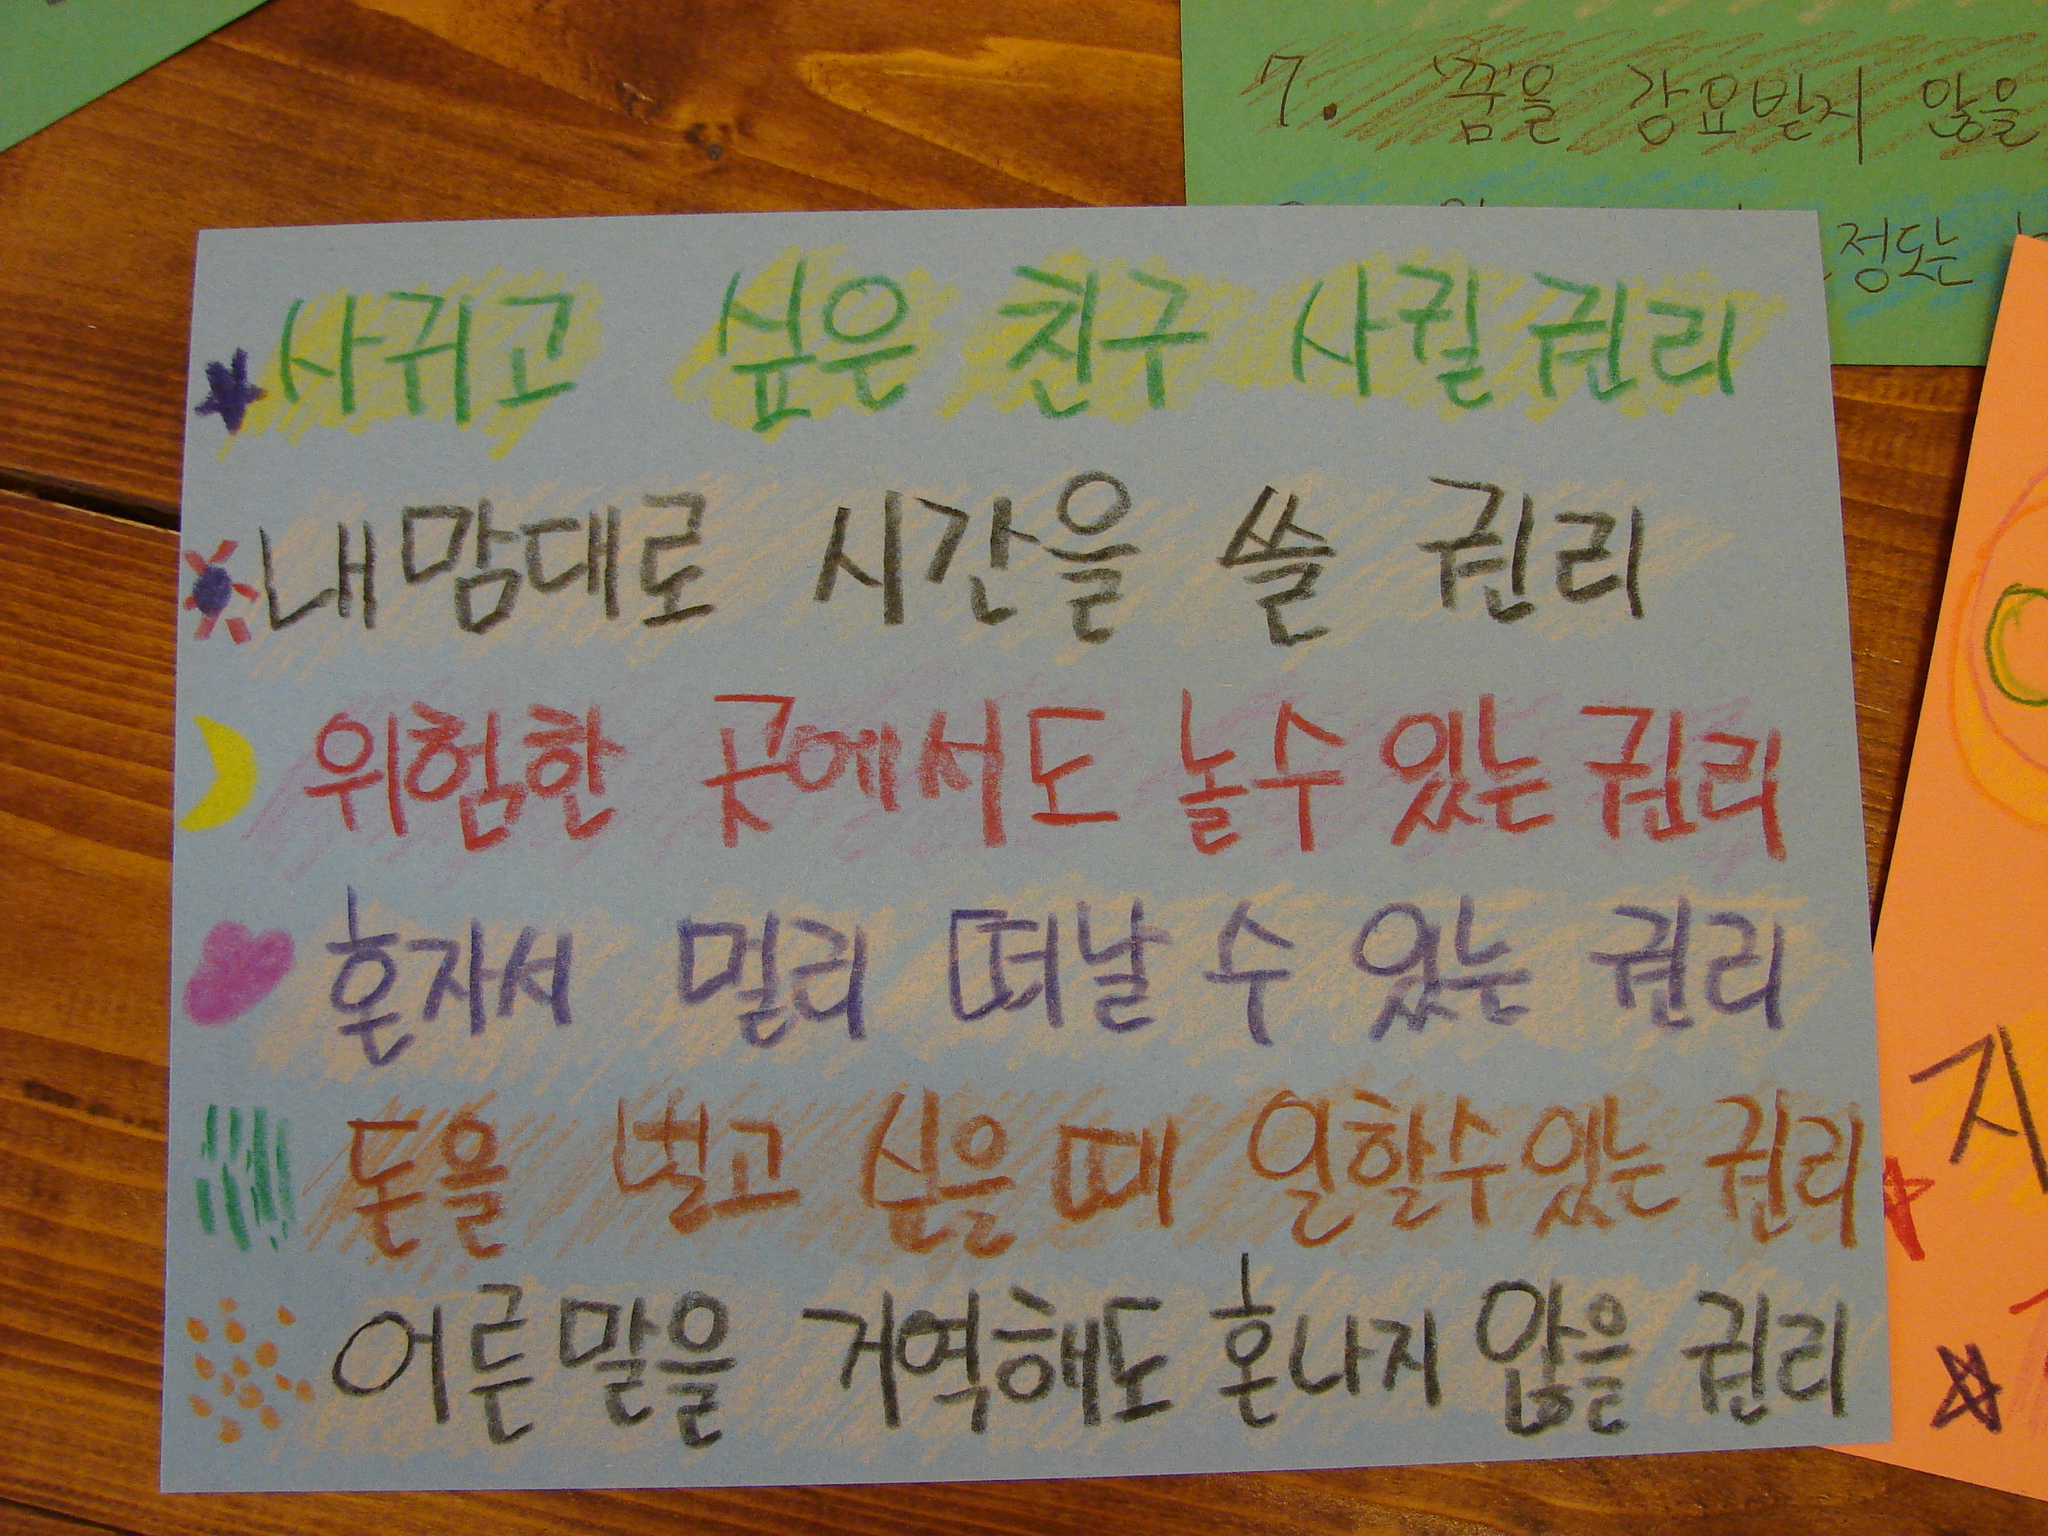 7. 꿈을 강요받지 않을
정도는
사귀고 싶은 친구 사귈 권리
내 맘대로 시간을 쓸 권리
위험한 곳에서도 놀수 있는 권리
혼자서 멀리 떠날 수 있는 권리
돈을 벌고 싶을 때 일할수 있는 권리
어른 말을 거역해도 혼나지 않을 권리